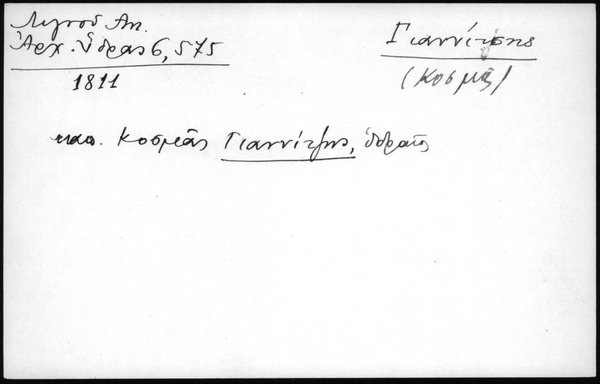 Λιγνοῦ Ἀπ.
Ἀρχ. Ὕδρας 6, 575
1811
Γιαννίτσης
(Κοσμᾶς)
καπ. Κοσμᾶς Γιαννίτζης, ὑδραῖος